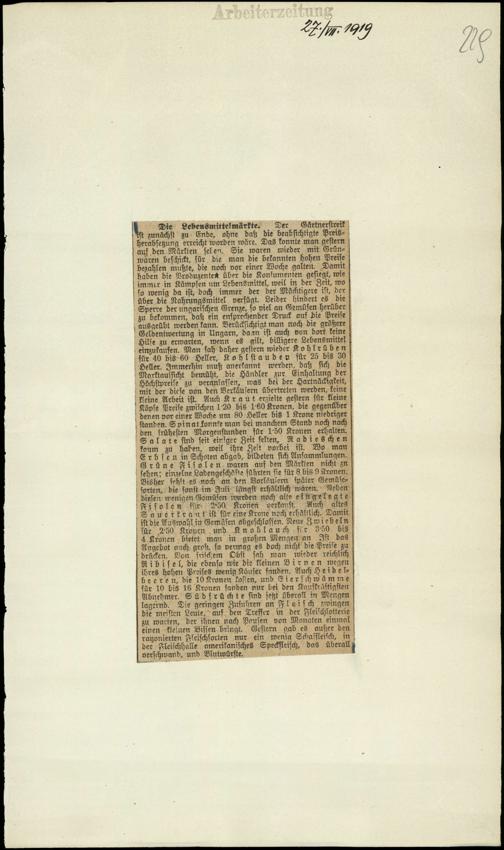 Arbeiterzeitung
27./VII. 1919
229
Die Lebensmittelmärkte. Der Gärtnerstreik
ist zunächst zu Ende, ohne daß die beabsichtigte Preis-
herabsetzung erreicht worden wäre. Das konnte man gestern
auf den Märkten sehen. Sie waren wieder mit Grün-
waren beschickt, für die man die bekannten hohen Preise
bezahlen mußte, die noch vor einer Woche galten. Damit
haben die Produzenten über die Konsumenten gesiegt, wie
immer in Kämpfen um Lebensmittel, weil in der Zeit, wo
so wenig da ist, doch immer der der Mächtigere ist, der
über die Nahrungsmittel verfügt. Leider hindert es die
Sperre der ungarischen Grenze, so viel an Gemüsen herüber
zu bekommen, daß ein entsprechender Druck auf die Preise
ausgeübt werden kann. Berücksichtigt man noch die größere
Geldentwertung in Ungarn, dann ist auch von dort keine
Hilfe zu erwarten, wenn es gilt, billigere Lebensmittel
einzukaufen. Man sah daher gestern wieder Kohlrüben
für 40 bis 60 Heller, Kohlstauden für 25 bis 30
Heller. Immerhin muß anerkannt werden, daß sich die
Marktaufsicht bemüht, die Händler zur Einhaltung der
Höchstpreise zu veranlassen, was bei der Hartnäckigkeit,
mit der diese von den Verkäufern übertreten werden, keine
kleine Arbeit ist. Auch Kraut erzielte gestern für kleine
Köpfe Preise zwischen 1·20 bis 1·60 Kronen, die gegenüber
denen vor einer Woche um 80 Heller bis 1 Krone niedriger
standen. Spinat konnte man bei manchem Stand noch nach
den frühesten Morgenstunden für 1·50 Kronen erhalten.
Salate sind seit einiger Zeit selten, Radieschen
kaum zu haben, weil ihre Zeit vorbei ist. Wo man
Erbsen in Schoten abgab, bildeten sich Ansammlungen.
Grüne Fisolen waren auf den Märkten nicht zu
sehen; einzelne Ladengeschäfte führten sie für 8 bis 9 Kronen.
Bisher fehlt es noch an den Vorläufern später Gemüse-
sorten, die sonst im Juli längst erhältlich waren. Neben
diesen wenigen Gemüsen werden noch alte eingelegte
Fisolen für 2·50 Kronen verkauft. Auch altes
Sauerkraut ist für eine Krone noch erhältlich. Damit
ist die Auswahl in Gemüsen abgeschlossen. Neue Zwiebeln
für 2·50 Kronen und Knoblauch für 3·50 bis
4 Kronen bietet man in großen Mengen an. Ist das
Angebot auch groß, so vermag es doch nicht die Preise zu
drücken. Von frischem Obst sah man wieder reichlich
Ribisel, die ebenso wie die kleinen Birnen wegen
ihres hohen Preises wenig Käufer fanden. Auch Heidel-
beeren, die 10 Kronen kosten, und Eierschwämme
für 10 bis 16 Kronen fanden nur bei den Kaufkräftigsten
Abnehmer. Südfrüchte sind jetzt überall in Mengen
lagernd. Die geringen Zufuhren an Fleisch zwingen
die meisten Leute, auf den Treffer in der Fleischlotterie
zu warten, der ihnen nach Pausen von Monaten einmal
einen kleinen Bissen bringt. Gestern gab es außer den
rayonierten Fleischsorten nur ein wenig Schaffleisch, in
der Fleischhalle amerikanisches Speckfleisch, das überall
verschwand, und Blutwürste.